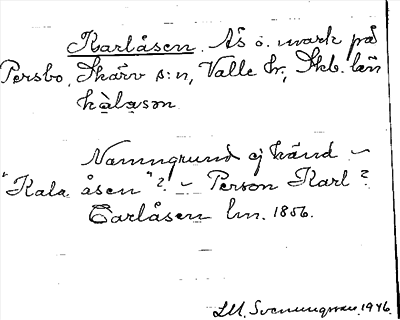 Karlåsen. Ås o. mark på
Persbo, Skärv s:n, Valle hr, Skb. län
kà̀lạsơn
Namngrund ej känd –
"Kala åsen"? – Person Karl?
Carlåsen lm. 1856.
LM. Svenungsson. 1946.